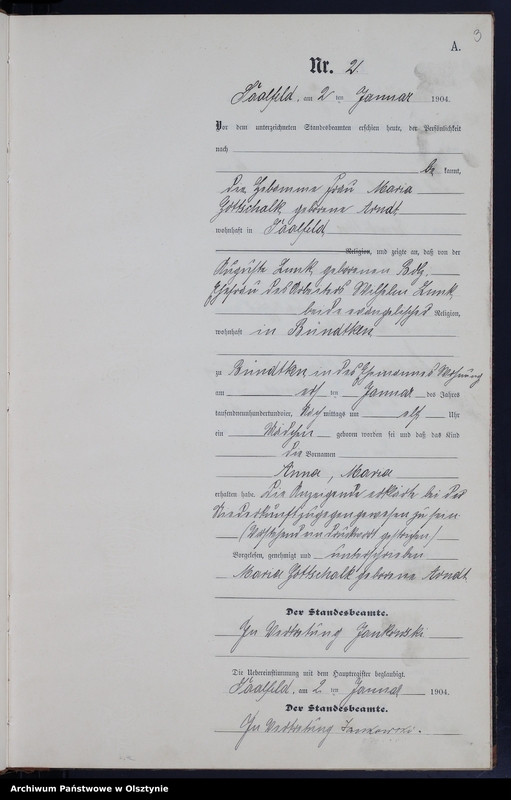 3
A.
Nr. 2
Saalfeld, am 2 ten Januar 1904.
Vor dem unterzeichneten Standesbeamten erschien heute, der Persönlichkeit
nach
be kannt,
die Hebamme Frau Maria
Gottschalk geborene Arndt
wohnhaft in Saalfeld
Religion, und zeigte an, daß von der
Auguste Zunk, geborenen
Ehefrau des Arbeiters Wilhelm Zunk,
beide evangelischer Religion,
wohnhaft in Bündtken
zu Bündtken in des Ehemannes Wohnung
am ersten Januar des Jahres
tausendneunhundertundvier, Nachmittags um elf Uhr
ein Mädchen geboren worden sei und daß das Kind
die Vornamen
Anna, Maria
erhalten habe. Die Anzeigende erklärte bei der
Niederkunft zugegen gewesen zu sein.
(Vorstehend ein Druckwort gestrichen)
Vorgelesen, genehmigt und unterschrieben
Maria Gottschalk geborene Arndt
Der Standesbeamte.
In Vertretung Jankowski
Die Uebereinstimmung mit dem Hauptregister beglaubigt.
Saalfeld, am 2 ten Januar 1904.
Der Standesbeamte.
In Vertretung Jankowski.
Archiwum Państwowe w Olsztynie